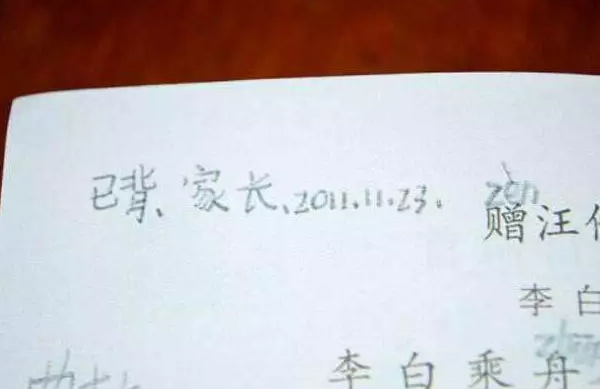 已背、家长、2011.11.23.
zèn
赠汪
李白
李白乘舟